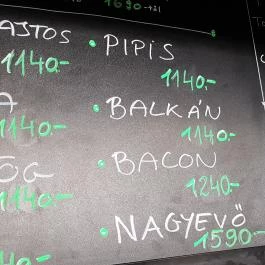 1690.-
AJTOS
1140.-
A
1140.-
OG
1140.-
40.-
• PIPIS
1140.-
• BALKÁN
1140.-
• BACON
1240.-
• NAGYEVŐ
1590.-